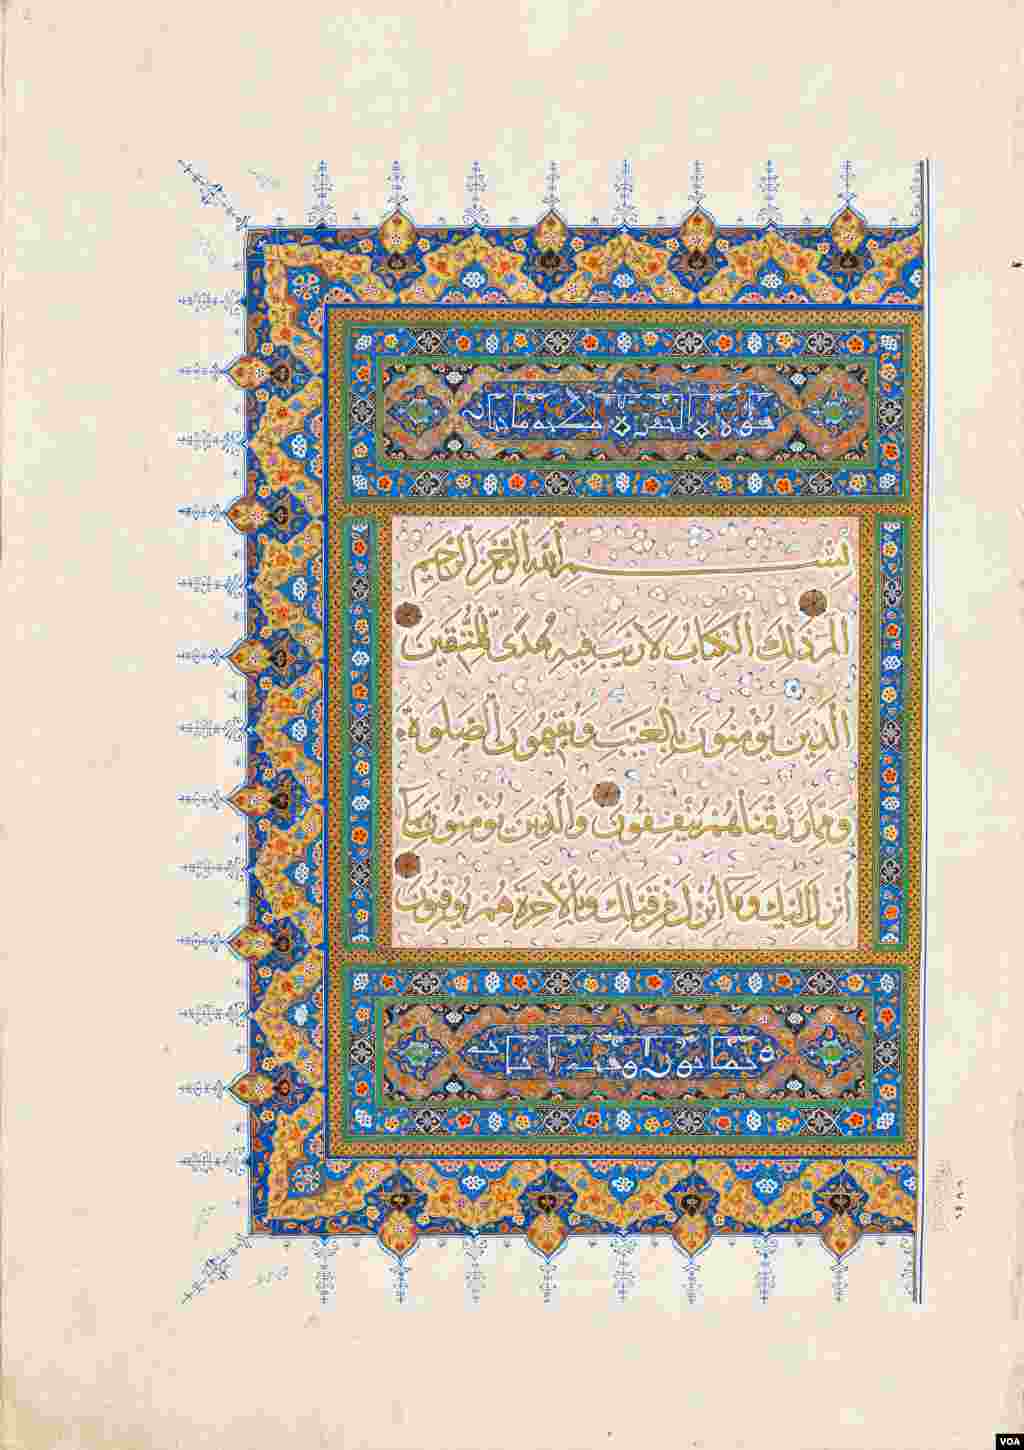 سورة البقرة
بسم الله الرحمن الرحيم
الم ذلك الكتاب لا ريب فيه هدى للمتقين
الذين يؤمنون بالغيب ويقيمون الصلوة
ومما رزقناهم ينفقون والذين يؤمنون بما
أنزل إليك وما أنزل من قبلك وبالآخرة هم يوقنون
VOA